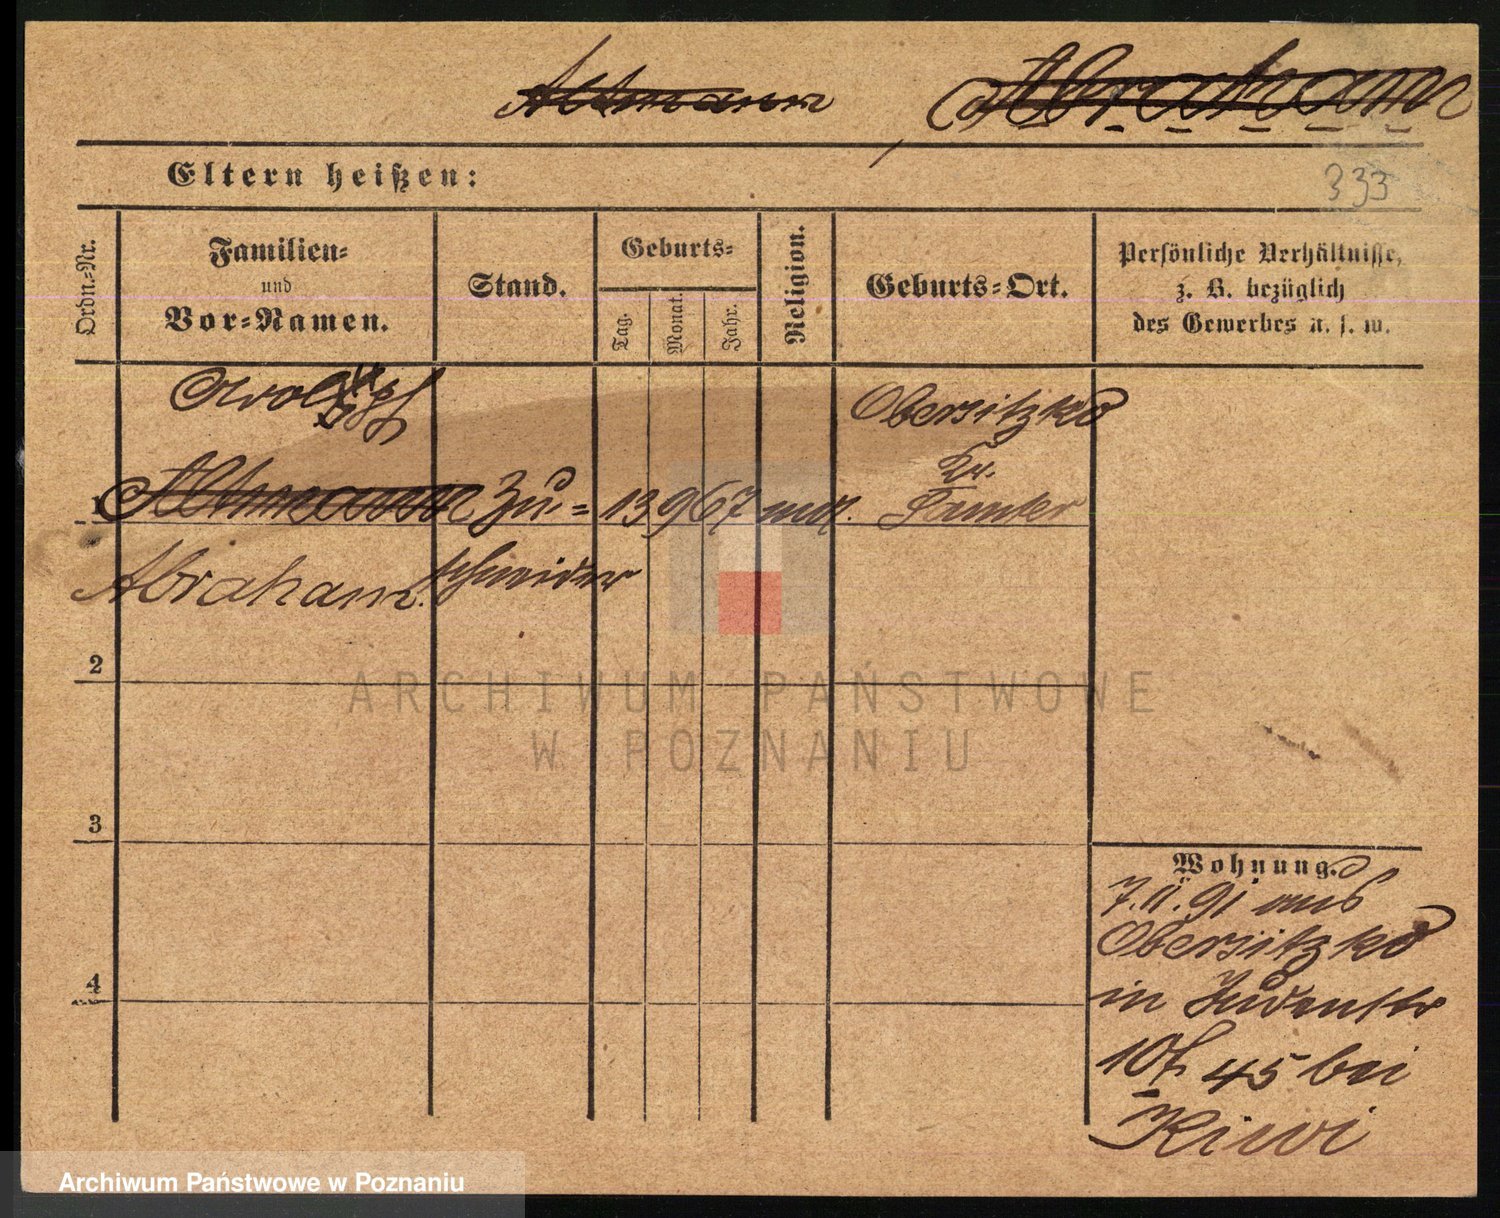 Altmann Abraham
333
Eltern heißen:
Ordn.-Nr.
Familien-
und
Vor-Namen.
Stand.
Geburts-
Tag.
Monat.
Jahr.
Religion.
Geburts-Ort.
Persönliche Verhältnisse,
z. B. bezüglich
des Gewerbes u. s. w.
Obersitzko
Kr.
1 Altmann Zu- 13 9 67 mos. Samter
Abraham. schneider
2
3
4
Wohnung.
7.11.91 aus
Obersitzko
in Judenstr
45 bei
Kiwi
ARCHIWUM PAŃSTWOWE
W POZNANIU
Archiwum Państwowe w Poznaniu